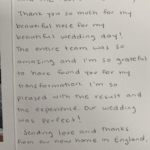 Thank you so much for my
beautiful nose for my
beautiful wedding day!
The entire team was so
amazing and I'm so grateful
to have found you for my
transformation. I'm so
pleased with the result and
the experience. Our wedding
was perfect!
Sending love and thanks
from our new home in England,